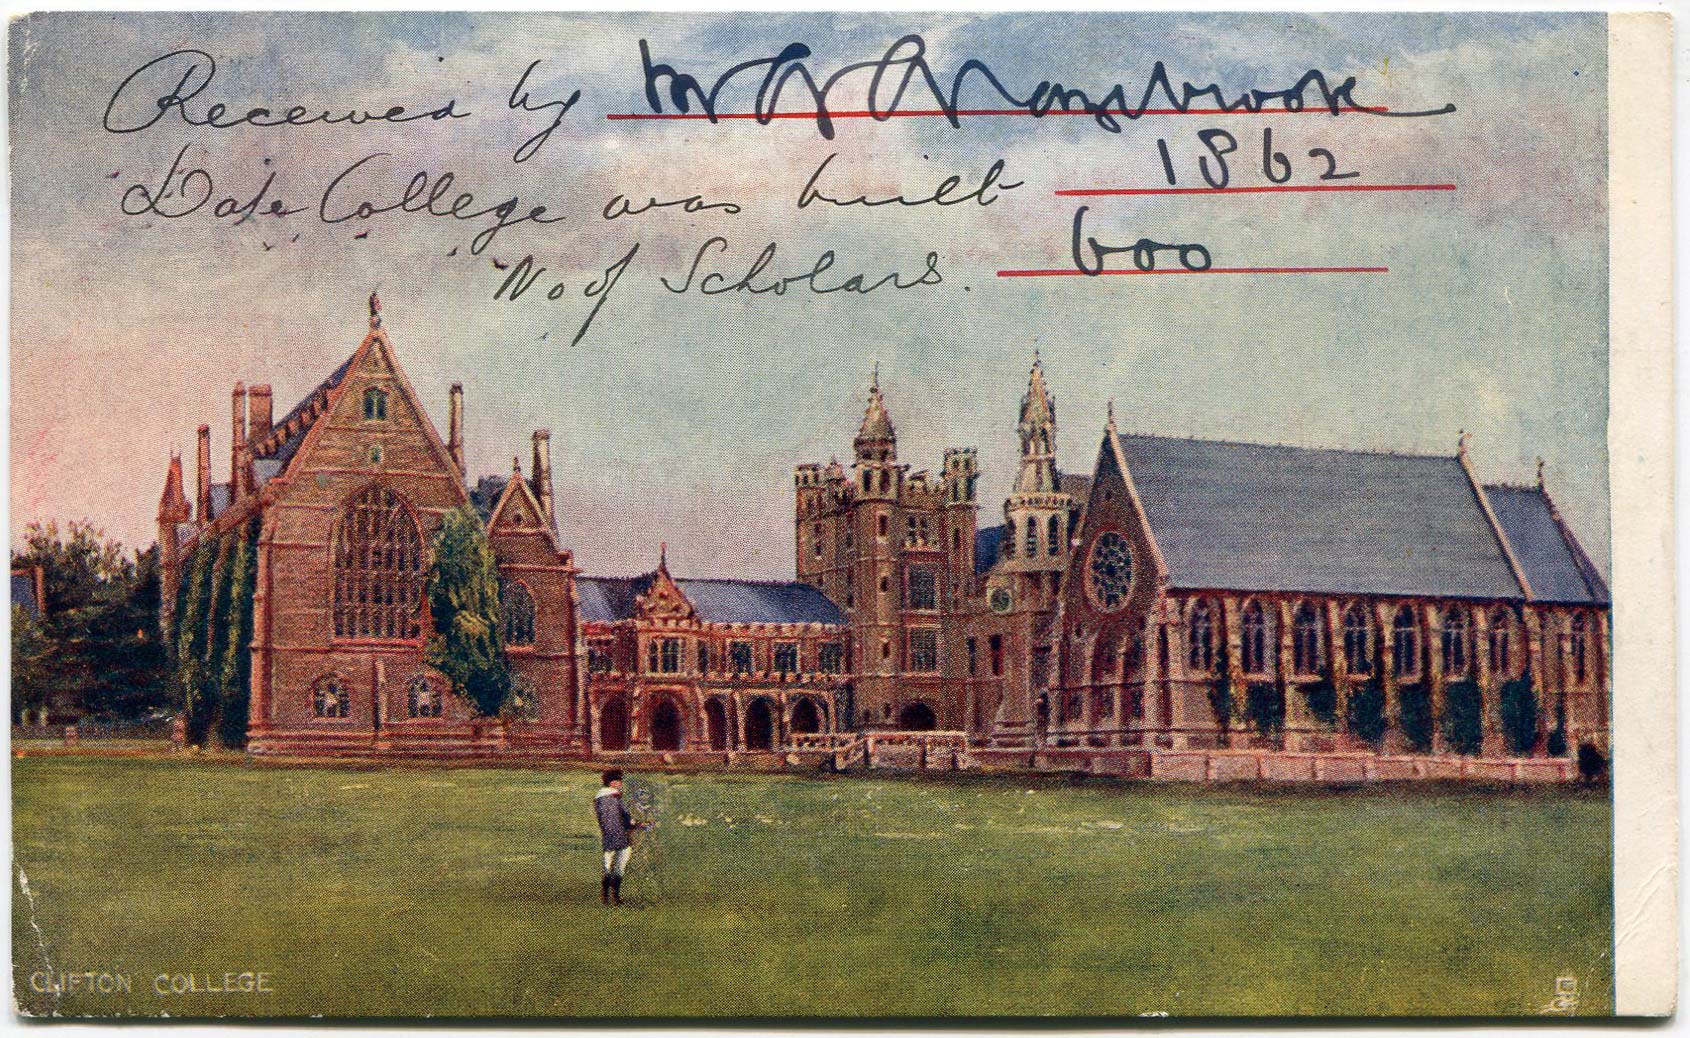 Received by Hazelbrook
Date College was built 1862
No of Scholars. 600
CLIFTON COLLEGE